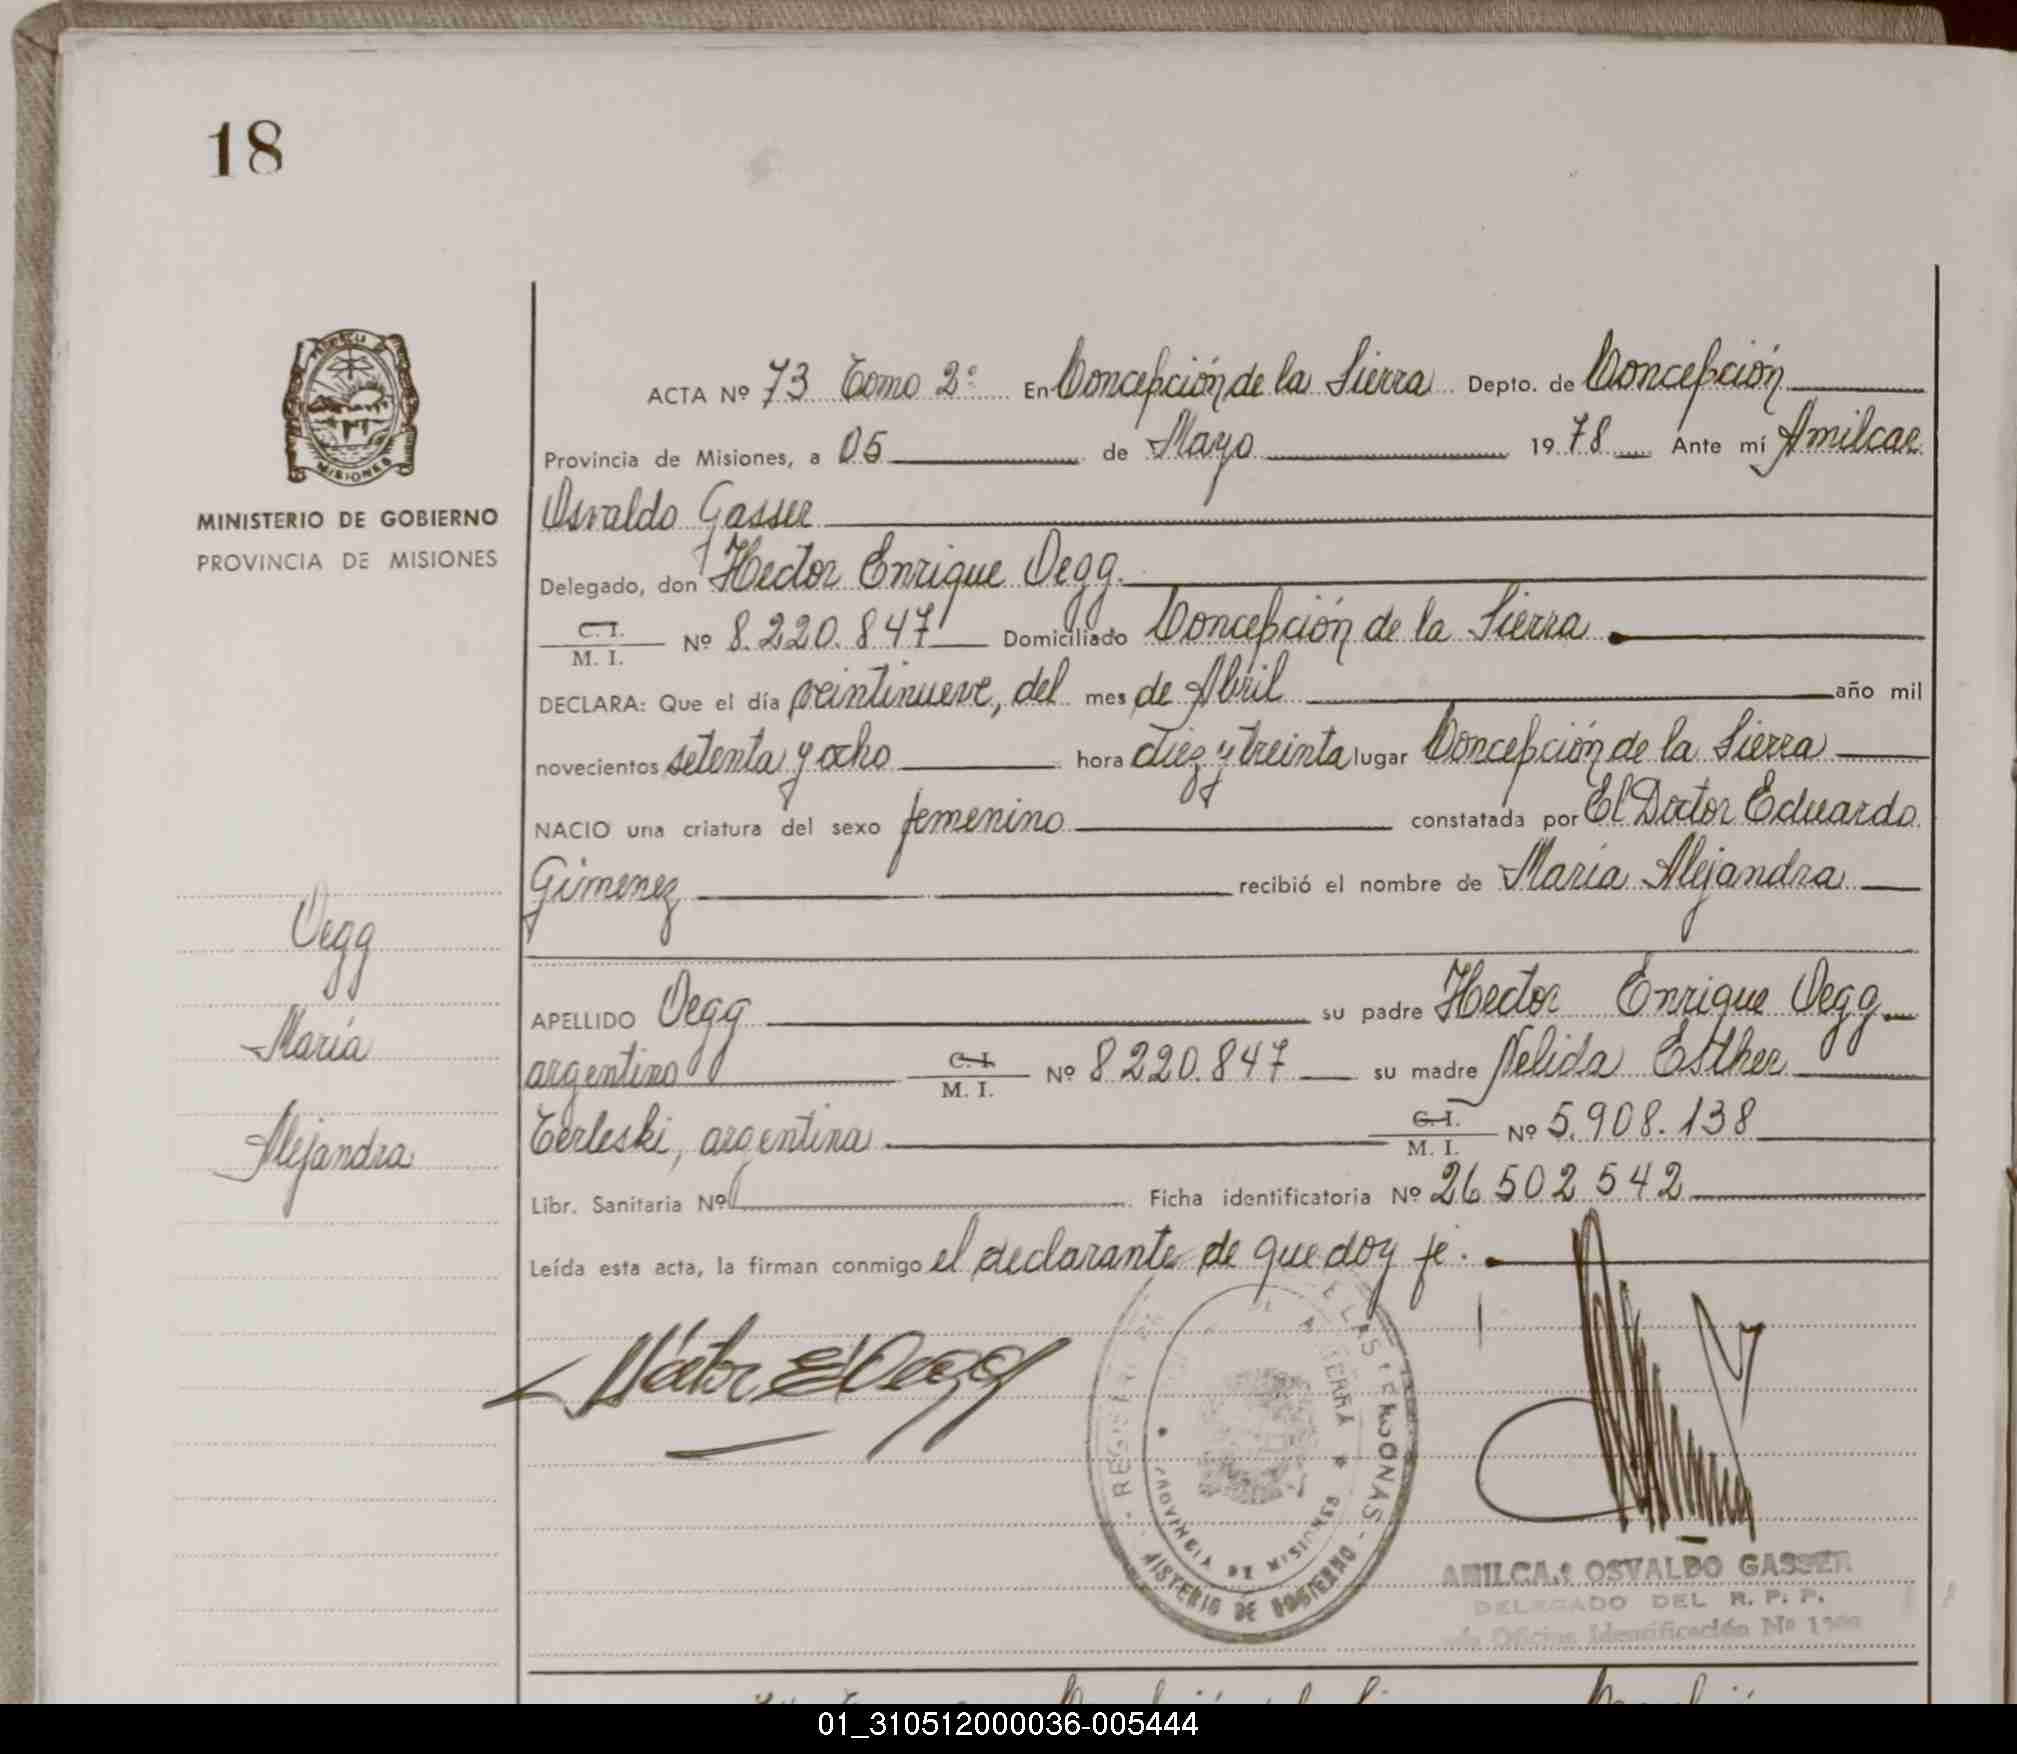 18
MISIONES
MINISTERIO DE GOBIERNO
PROVINCIA DE MISIONES
Oegg
María
Alejandra
ACTA Nº 73 Tomo 2º En Concepción de la Sierra Depto. de Concepción
Provincia de Misiones, a 05 de Mayo 1978 Ante mí Amilcar
Osvaldo Gasser
Delegado, don Hector Enrique Oegg.
C. I.
M. I. Nº 8.220.847 Domiciliado Concepción de la Sierra
DECLARA: Que el día veintinueve, del mes de Abril año mil
novecientos setenta y ocho hora diez y treinta lugar Concepción de la Sierra
NACIO una criatura del sexo femenino constatada por El Doctor Eduardo
Gimenez recibió el nombre de María Alejandra
APELLIDO Oegg su padre Hector Enrique Oegg
argentino C. I. M. I. Nº 8.220.847 su madre Nelida Esther
Terleski, argentina C. I. M. I. Nº 5.908.138
Libr. Sanitaria Nº Ficha identificatoria Nº 26 502 542
Leída esta acta, la firman conmigo el declarante de que doy fe.
Héctor E Oegg
PROVINCIA DE MISIONES
DE GOBIERNO
AMILCAR OSVALDO GASSER
DELEGADO DEL R. P. P.
Oficina Identificación Nº
01_310512000036-005444